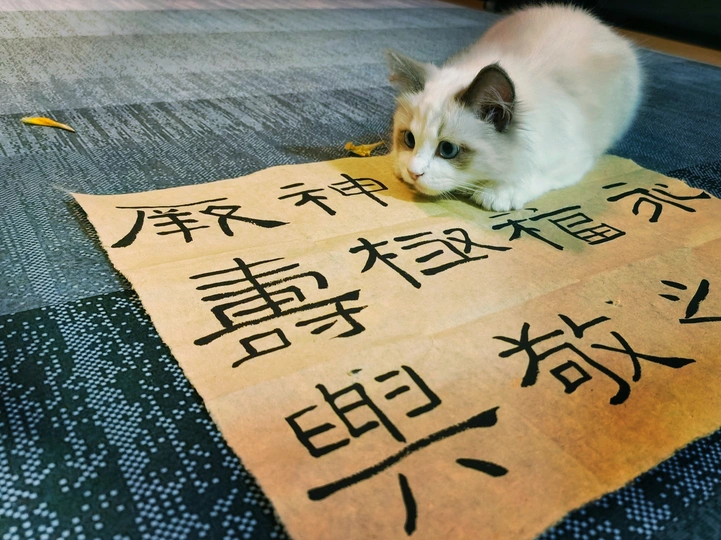 厥神
壽極福永
興敬